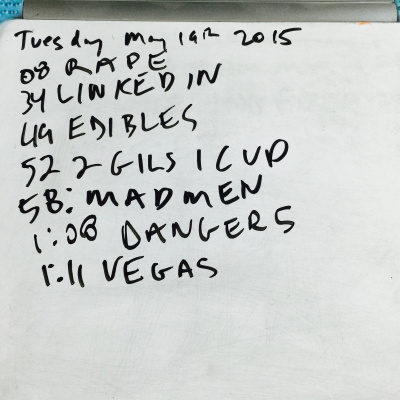 Tuesday May 19th 2015
08 RAPE
34 LINKED IN
49 EDIBLES
52 2 GILS 1 CUP
58: MADMEN
1:08 DANGERS
1:11 VEGAS